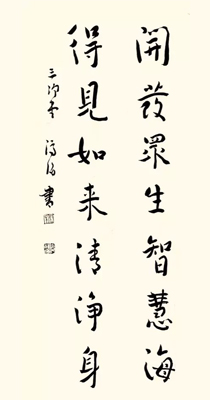 開發眾生智慧海
得見如来清净身
書